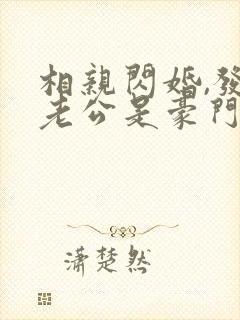 相親閃婚,發
老公是豪門
瀟楚然